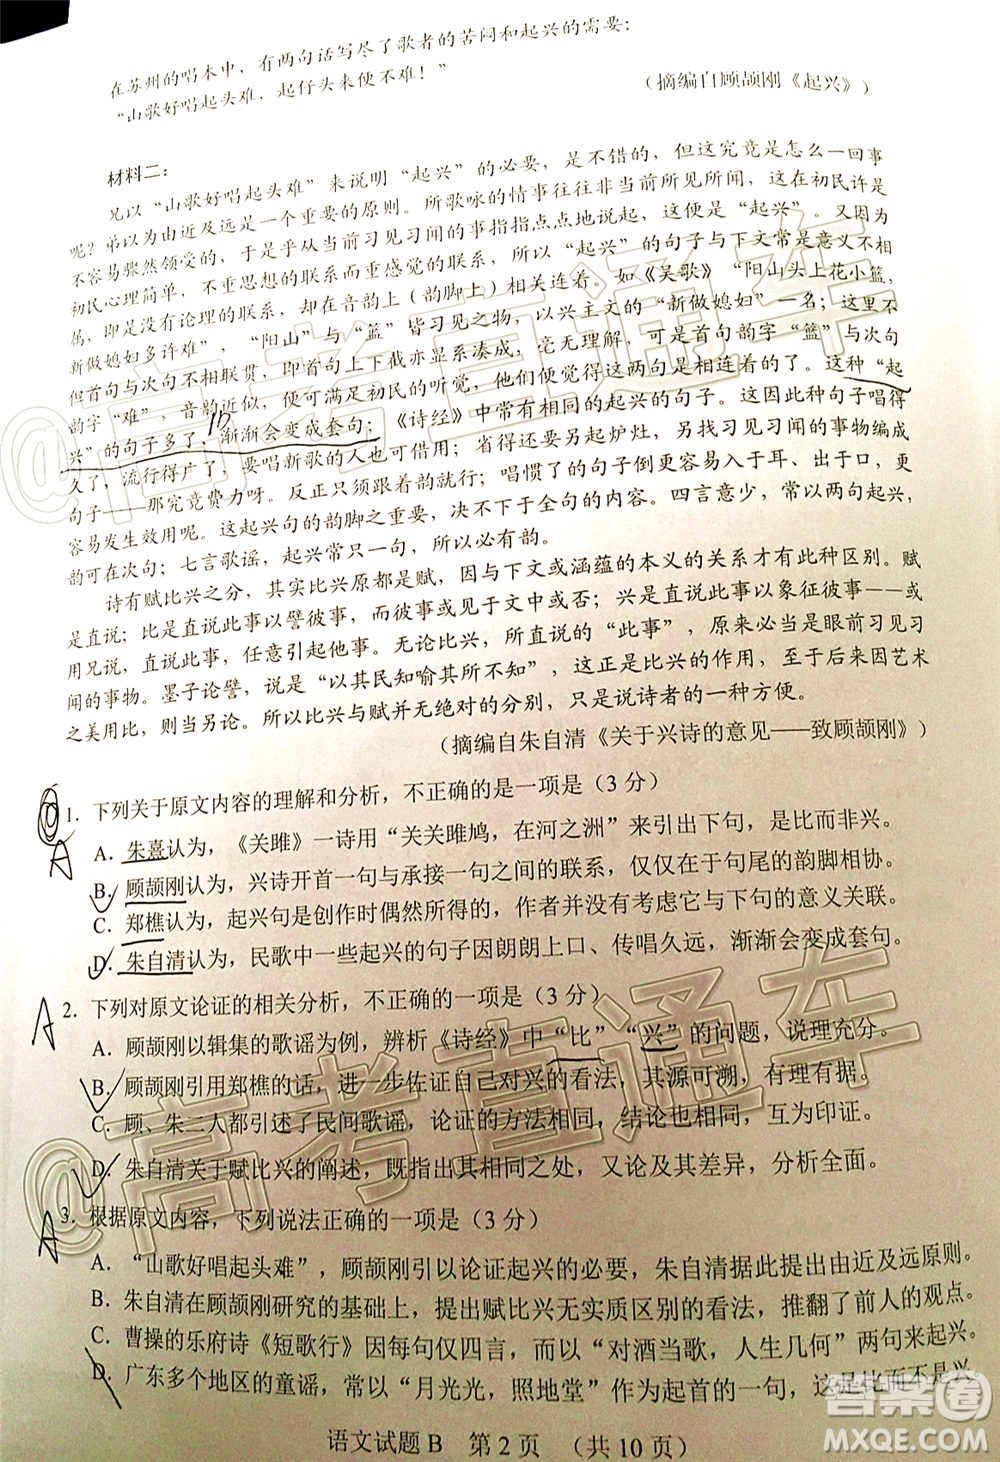 在苏州的唱本中，有两句话写尽了歌者的苦闷和起兴的需要：
“山歌好唱起头难，起仔头来便不难！”
（摘编自顾颉刚《起兴》）
材料二：
兄以“山歌好唱起头难”来说明“起兴”的必要，是不错的，但这究竟是怎么一回事
呢？弟以为由近及远是一个重要的原则。所歌咏的情事往往非当前所见所闻，这在初民许是
不容易骤然领受的，于是乎从当前习见习闻的事指指点点地说起，这便是“起兴”。又因为
初民心理简单，不重思想的联系而重感觉的联系，所以“起兴”的句子与下文常是意义不相
属，即是没有论理的联系，却在音韵上（韵脚上）相关连着。如《吴歌》“阳山头上花小篮，
新做媳妇多许难”，“阳山”与“篮”皆习见之物，以兴主文的“新做媳妇”一名；这里不
但首句与次句不相联贯，即首句上下截亦显系凑成，毫无理解，可是首句韵字“篮”与次句
韵字“难”，音韵近似，便可满足初民的听觉，他们便会觉得这两句是相连着的了。这种“起
兴”的句子多了，渐渐会变成套句；《诗经》中常有相同的起兴的句子。这因此种句子唱得
久了，流行得广了，要唱新歌的人也可借用，省得另起炉灶，找习见习闻的事物编成
句子——那究竟费力呀。反正只重韵脚的关系；唱惯了的句子倒更容易入于耳、出于口，更
容易发生效用呢。这起兴句的韵脚之重要，决不下于全句的含义。四言意少，常以两句起兴，
韵可在次句；七言歌谣，起兴只一句，所以必有韵。
诗有赋比兴之分，其实比兴原都是赋，因与下文或涵蕴的本义的关系才有此种区别。赋
是直说；比是直说此事以譬彼事，而彼事或见于文中或否；兴是直说此事以象征彼事，或
用兄说，直说此事，任意引起他事。无论比兴，所直说的“此事”，原来必当是眼前习见习
闻的事物。墨子论譬，说是“以其民知喻其所不知”，这正是比兴的作用，至于后来因艺术
之美用比，则当另论。所以比兴与赋并无绝对的分别，只是说诗者的一种方便。
（摘编自朱自清《关于兴诗的意见——致顾颉刚》）
1．下列关于原文内容的理解和分析，不正确的是一项是（3 分）
A．朱熹认为，《关雎》一诗用“关关雎鸠，在河之洲”来引出下句，是比而非兴。
B．顾颉刚认为，兴诗开首一句与承接一句之间的联系，仅仅在于句尾的韵脚相协。
C．郑樵认为，起兴句是创作时偶然所得的，并没有考虑它与下句的意义关联。
D．朱自清认为，民歌中一些起兴的句子因朗朗上口、传唱久远，渐渐会变成套句。
2．下列对原文论证的相关分析，不正确的一项是（3 分）
A．顾颉刚以辑集的歌谣为例，辨析《诗经》中“比”“兴”的问题，说理充分。
B．顾颉刚引用郑樵的话，进一步佐证自己对兴的看法，其源可溯，有理有据。
C．顾、朱二人都引述了民间歌谣，论证的方法相同，结论也相同，互为印证。
D．朱自清关于赋比兴的阐述，既指出其相同之处，又论及其差异，分析全面。
3．根据原文内容，下列说法正确的一项是（3 分）
A．“山歌好唱起头难”，顾颉刚引以论证起兴的必要，朱自清据此提出由近及远原则。
B．朱自清在顾颉刚研究的基础上，提出赋比兴无实质区别的看法，推翻了前人的观点。
C．曹操的乐府诗《短歌行》因每句仅四言，而以“对酒当歌，人生几何”两句来起兴。
D．广东多个地区的童谣，常以“月光光，照地堂”作为起首的一句，这是比而不是兴。
语文试题 B 第 2 页 （共 10 页）
@高考直通车
@高考直通车
答案圈
MXQE.COM